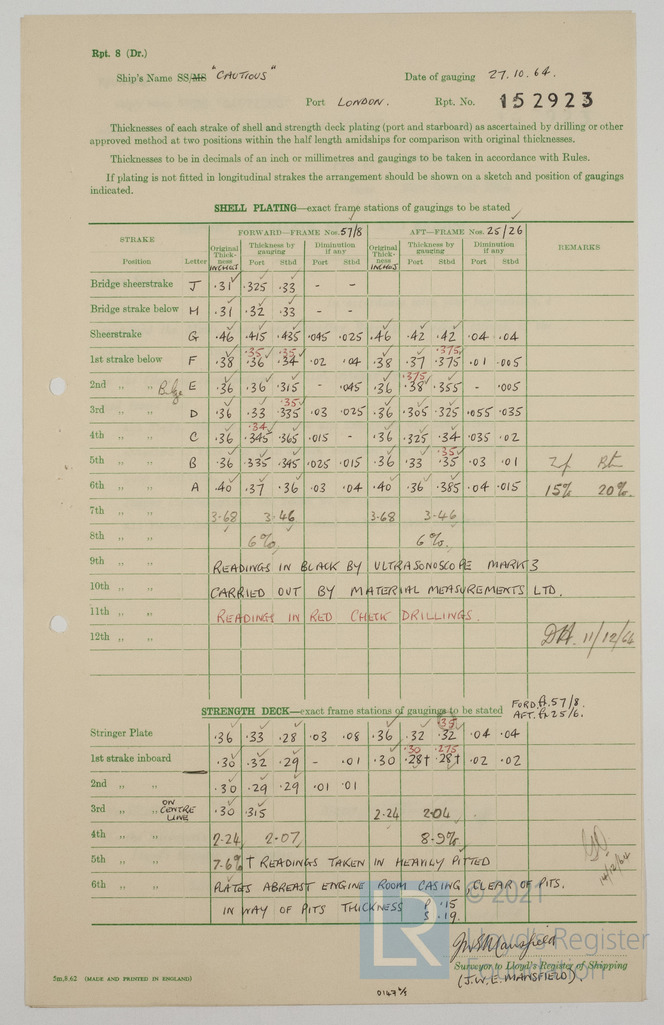 Rpt. 8 (Dr.)
Ship's Name SS/MS "CAUTIOUS" Date of gauging 27.10.64.
Port LONDON. Rpt. No. 152923
Thicknesses of each strake of shell and strength deck plating (port and starboard) as ascertained by drilling or other
approved method at two positions within the half length amidships for comparison with original thicknesses.
Thicknesses to be in decimals of an inch or millimetres and gaugings to be taken in accordance with Rules.
If plating is not fitted in longitudinal strakes the arrangement should be shown on a sketch and position of gaugings
indicated.
SHELL PLATING—exact frame stations of gaugings to be stated
STRAKE FORWARD—FRAME Nos. 57/8 AFT—FRAME Nos. 25/26 REMARKS
Position Letter Original Thickness INCHES Thickness by gauging Port Stbd Diminution if any Port Stbd Original Thickness INCHES Thickness by gauging Port Stbd Diminution if any Port Stbd
Bridge sheerstrake J .31 .325 .33 - -
Bridge strake below H .31 .32 .33 - -
Sheerstrake G .46 .415 .435 .045 .025 .46 .42 .42 .04 .04
.35 .35 .375
1st strake below F .38 .36 .34 .02 .04 .38 .37 .375 .01 .005
.375
2nd " " Bilge E .36 .36 .315 - .045 .36 .38 .355 - .005
.35
3rd " " D .36 .33 .335 .03 .025 .36 .305 .325 .055 .035
.34
4th " " C .36 .345 .365 .015 - .36 .325 .34 .035 .02
.35
5th " " B .36 .335 .345 .025 .015 .36 .33 .35 .03 .01
6th " " A .40 .37 .36 .03 .04 .40 .36 .385 .04 .015 15% 20%.
7th " " 3.68 3.46 3.68 3.46
8th " " 6% 6%.
9th " " READINGS IN BLACK BY ULTRASONOSCOPE MARK 3
10th " " CARRIED OUT BY MATERIAL MEASUREMENTS LTD.
11th " " READINGS IN RED CHECK DRILLINGS.
12th " " 11/12/64
STRENGTH DECK—exact frame stations of gaugings to be stated FORD. fr. 57/8
AFT. fr 25/6.
.35
Stringer Plate .36 .33 .28 .03 .08 .36 .32 .32 .04 .04
.30 .275
1st strake inboard .30 .32 .29 - .01 .30 .28† .28† .02 .02
2nd " " .30 .29 .29 .01 .01
3rd " " ON CENTRE LINE .30 .315 2.24 2.04
4th " " 2.24 2.07 8.9%
5th " " 7.6% † READINGS TAKEN IN HEAVILY PITTED
6th " " PLATES ABREAST ENGINE ROOM CASING CLEAR OF PITS.
IN WAY OF PITS THICKNESS P .15
S .19.
14/12/64
© 2021
LR Lloyd's Register Foundation
J.W.E. Mansfield
Surveyor to Lloyd's Register of Shipping
(J.W.E. MANSFIELD).
5m,8,62 (MADE AND PRINTED IN ENGLAND)